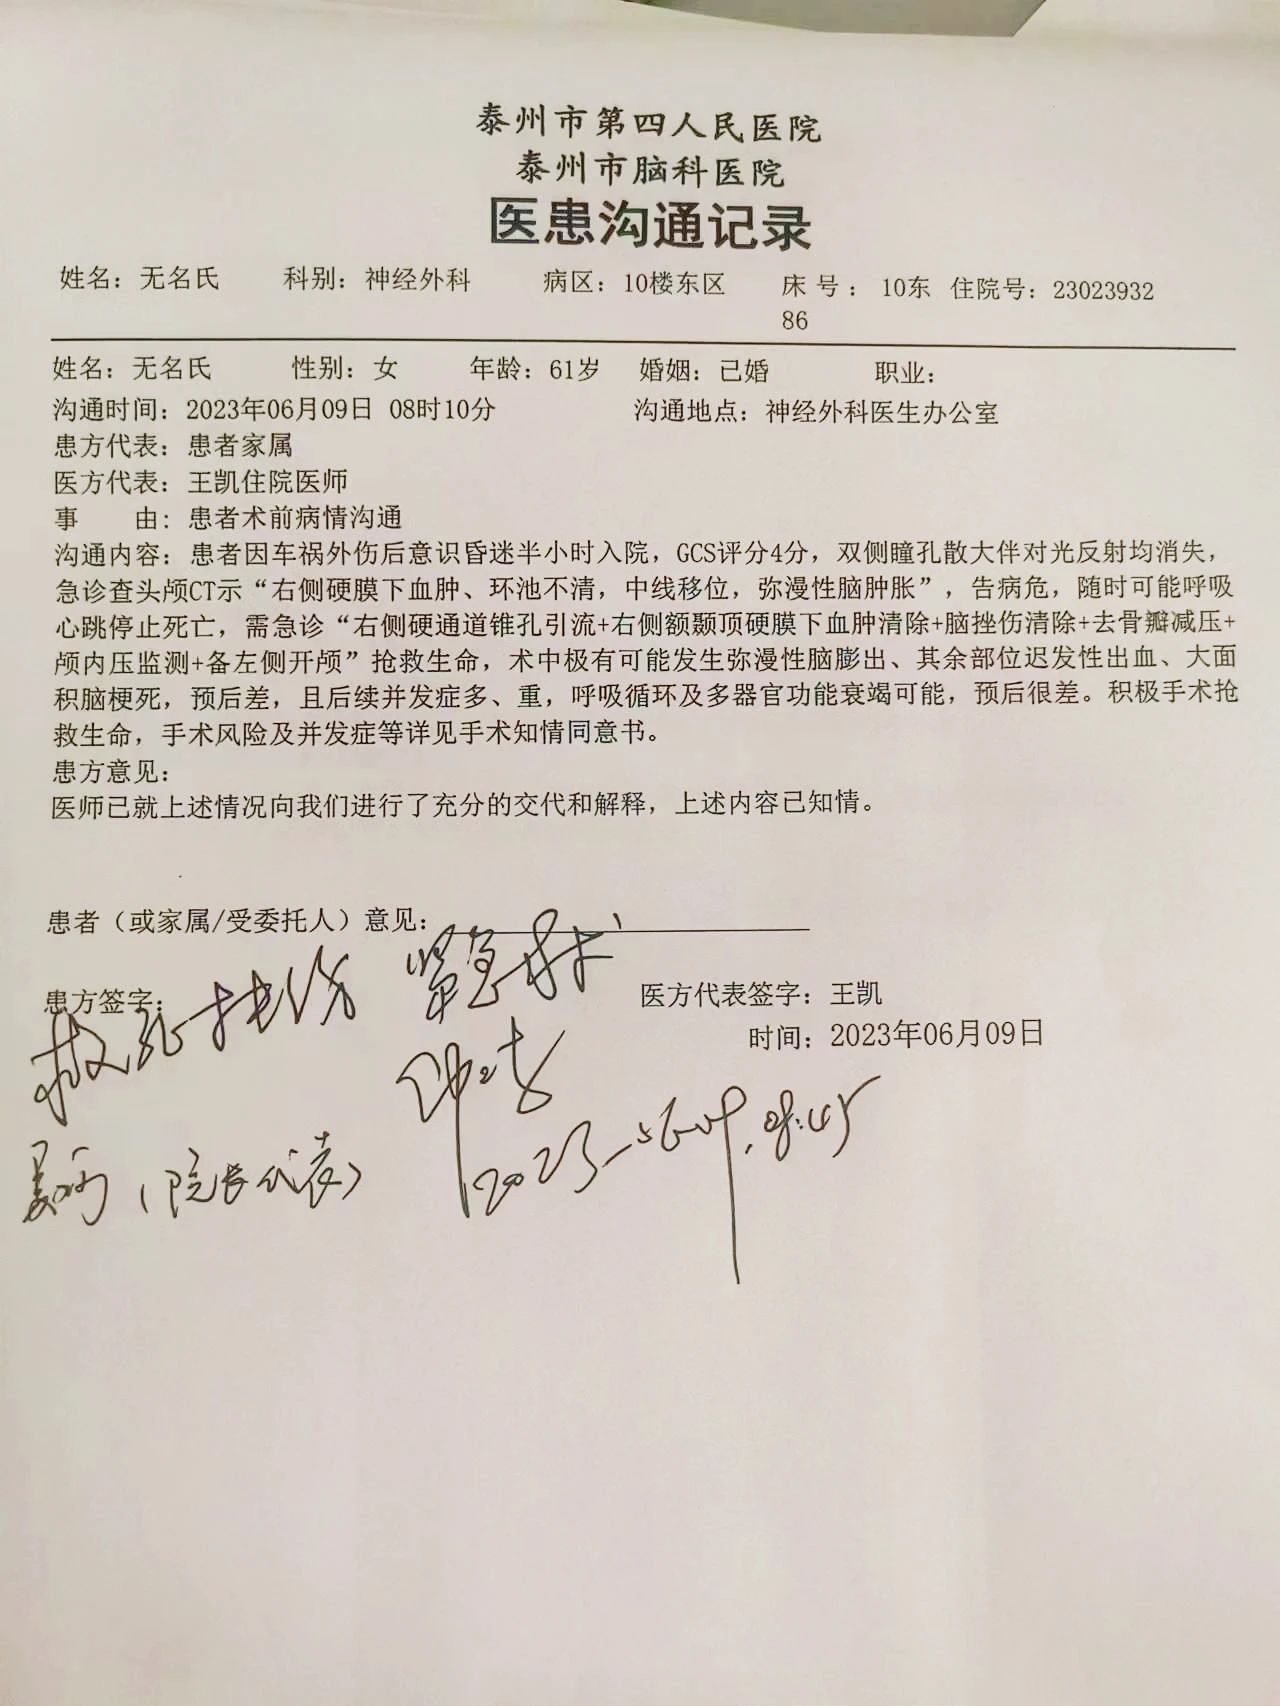 泰州市第四人民医院
泰州市脑科医院
医患沟通记录
姓名：无名氏 科别：神经外科 病区：10楼东区 床号：10东 住院号：23023932
86
姓名：无名氏 性别：女 年龄：61岁 婚姻：已婚 职业：
沟通时间：2023年06月09日 08时10分 沟通地点：神经外科医生办公室
患方代表：患者家属
医方代表：王凯住院医师
事 由：患者术前病情沟通
沟通内容：患者因车祸外伤后意识昏迷半小时入院，GCS评分4分，双侧瞳孔散大伴对光反射均消失，
急诊查头颅CT示“右侧硬膜下血肿、环池不清，中线移位，弥漫性脑肿胀”，告病危，随时可能呼吸
心跳停止死亡，需急诊“右侧硬通道锥孔引流+右侧额颞顶硬膜下血肿清除+脑挫伤清除+去骨瓣减压+
颅内压监测+备左侧开颅”抢救生命，术中极有可能发生弥漫性脑膨出、其余部位迟发性出血、大面
积脑梗死，预后差，且后续并发症多、重，呼吸循环及多器官功能衰竭可能，预后很差。积极手术抢
救生命，手术风险及并发症等详见手术知情同意书。
患方意见：
医师已就上述情况向我们进行了充分的交代和解释，上述内容已知情。
患者（或家属/受委托人）意见：
紧急手术
患方签字： 医方代表签字：王凯
救死扶伤
时间：2023年06月09日
（院长代表）